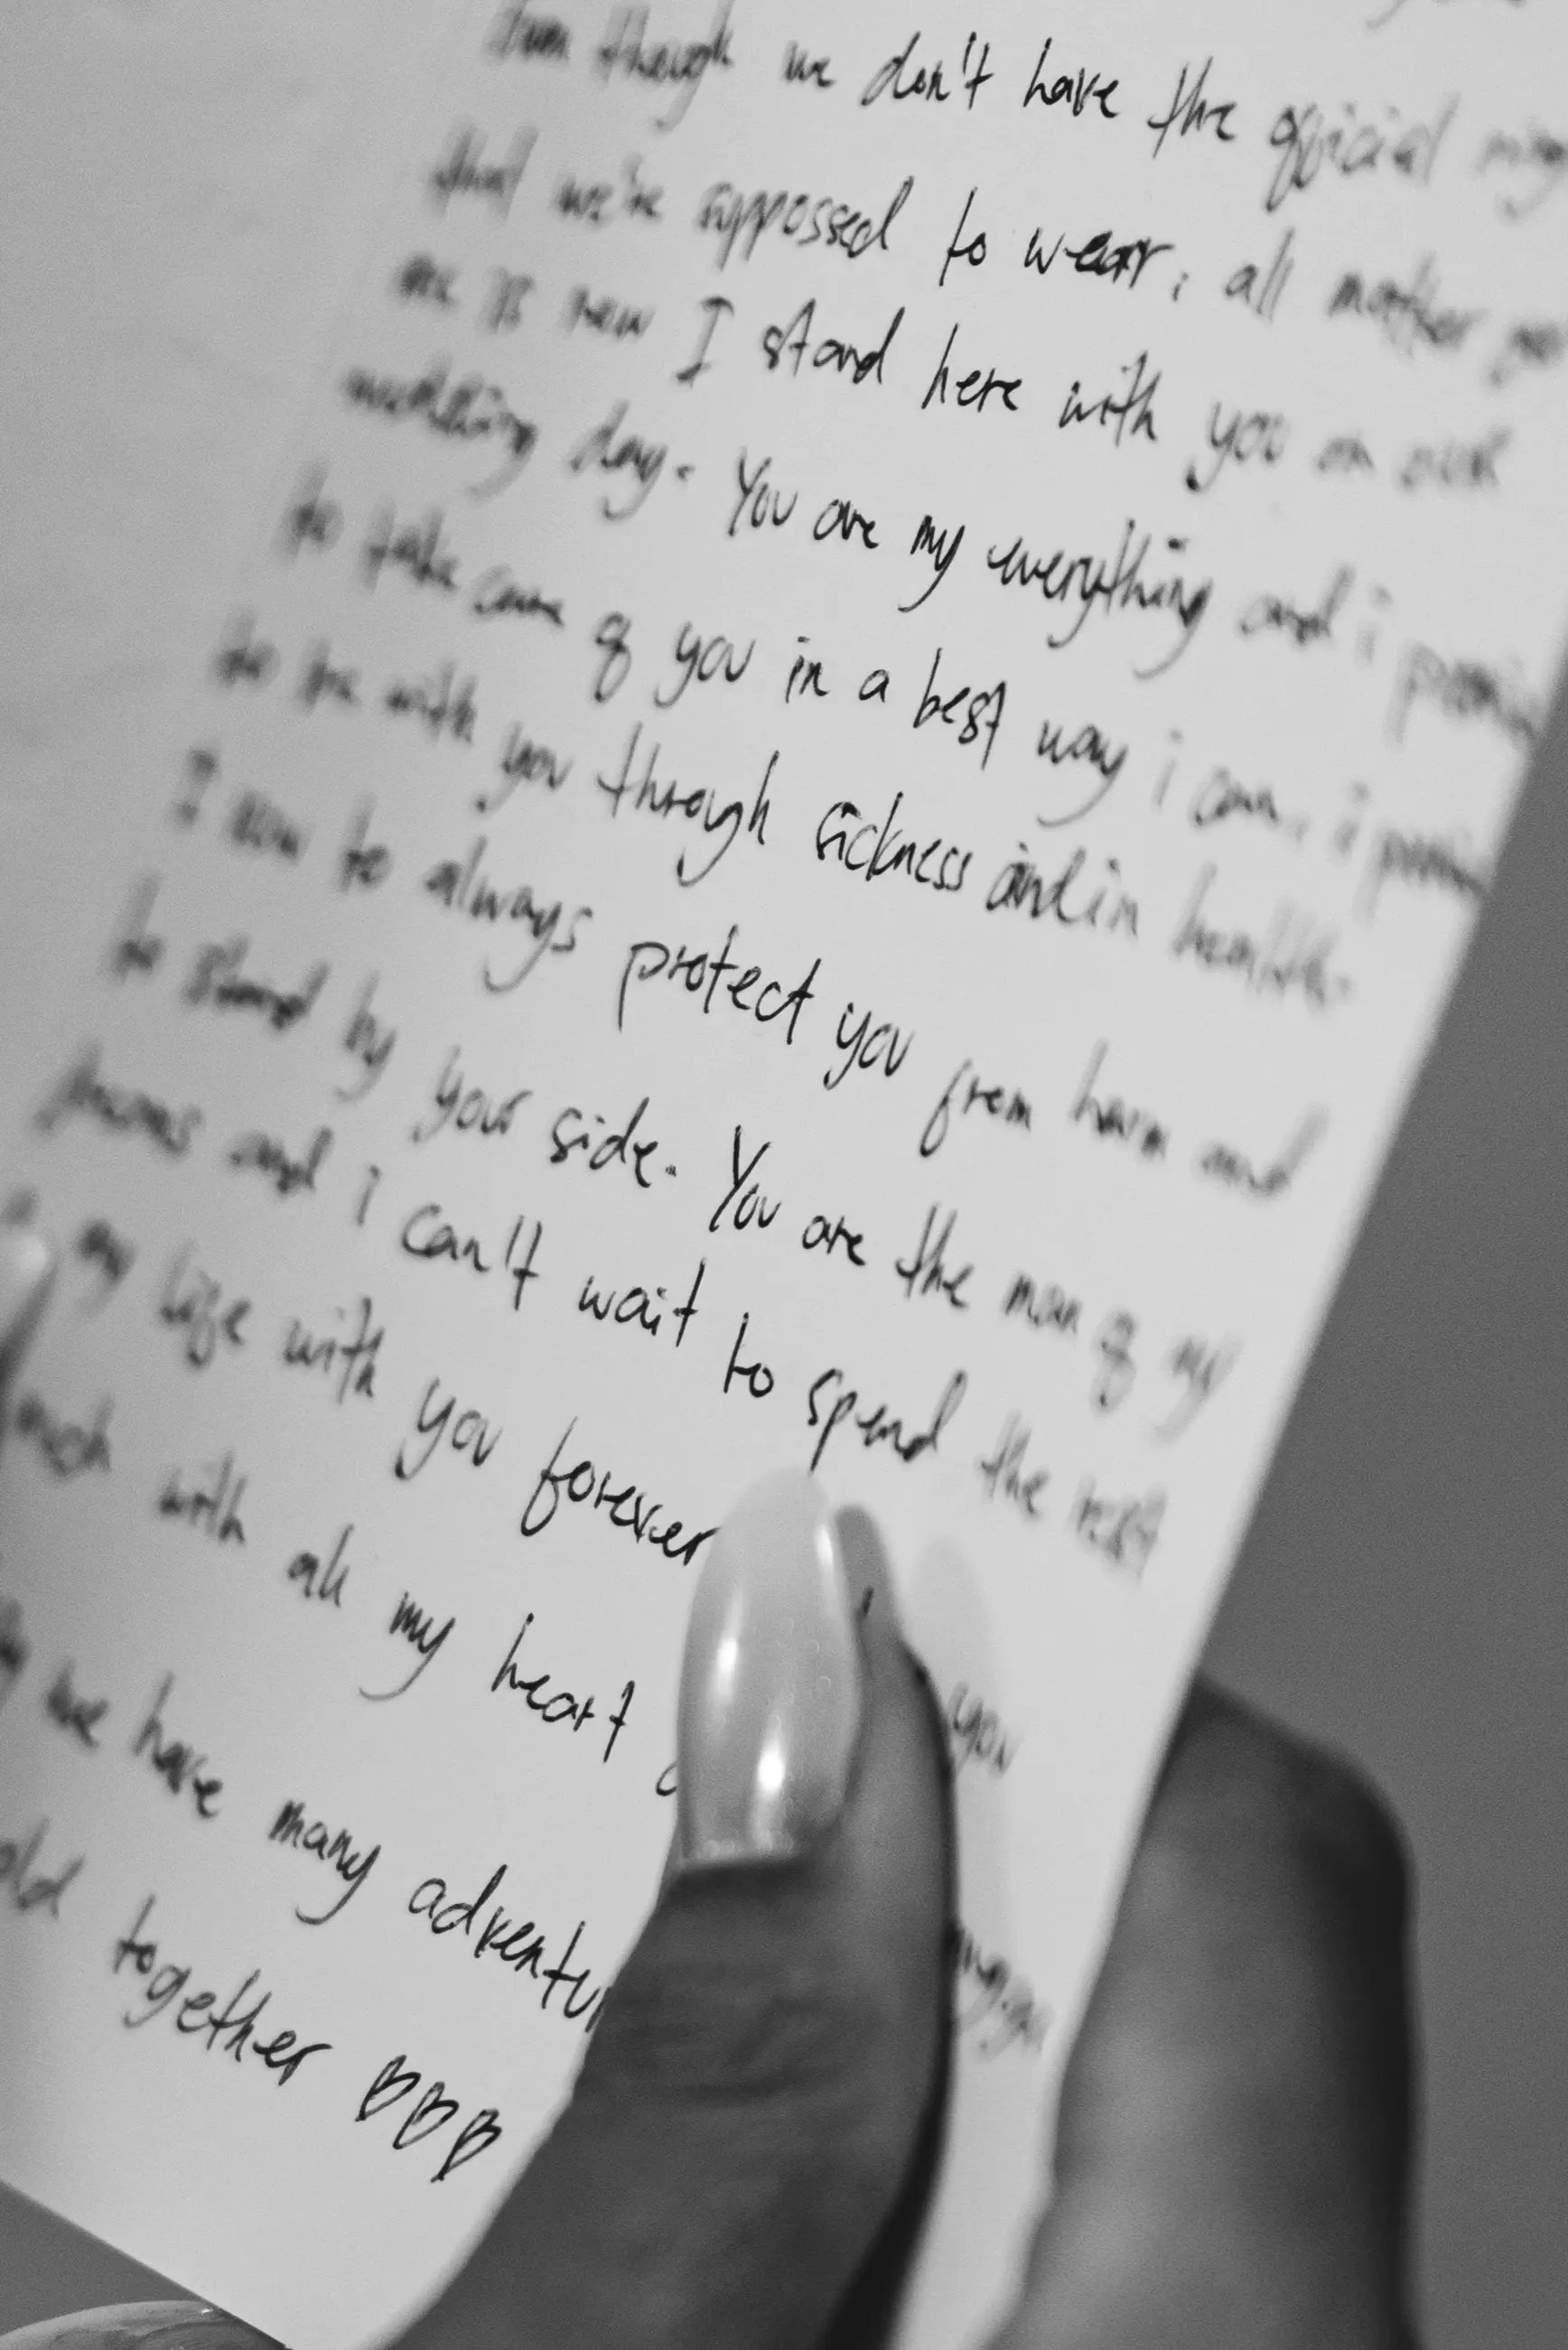 Even though we don't have the official
that we're suppossed to wear, all matter
me is now I stand here with you on our
wedding day. You are my everything and i
to take care of you in a best way i can, i
to be with you through sickness and in health.
I vow to always protect you from harm and
to stand by your side. You are the man of my
dreams and i can't wait to spend the rest
my life with you forever
much with all my heart you
we have many
old together ♡♡♡